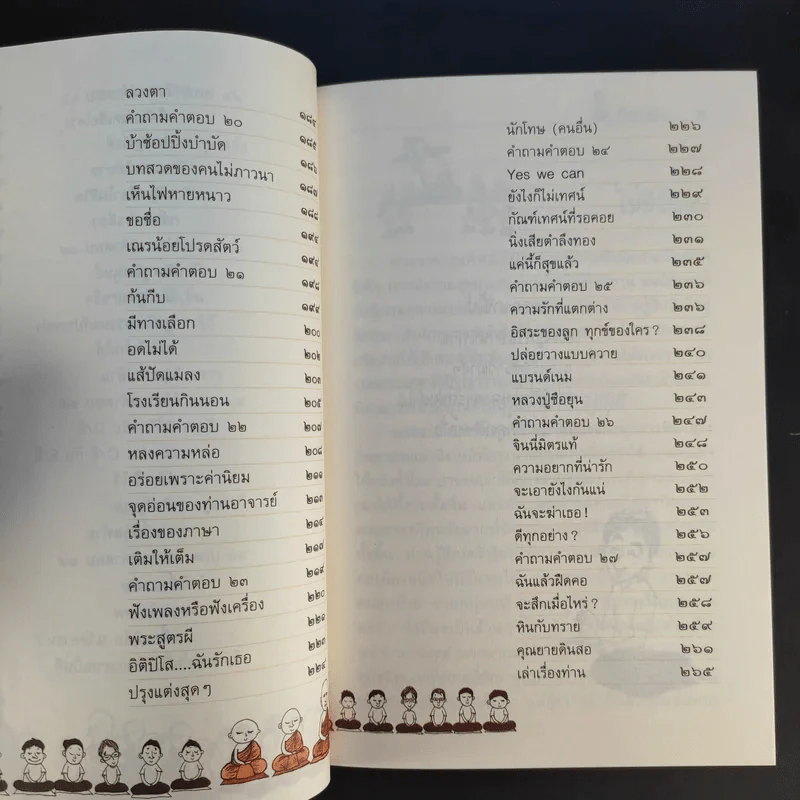 ลวงตา ๑๘๔
คำถามคำตอบ ๒๐ ๑๘๕
บ้าช้อปปิ้งบำบัด ๑๘๖
บทสวดของคนไม่ภาวนา ๑๘๗
เห็นไฟหายหนาว ๑๘๘
ขอชื่อ ๑๙๔
เณรน้อยโปรดสัตว์ ๑๙๔
คำถามคำตอบ ๒๑ ๑๙๘
ก้นกีบ ๑๙๙
มีทางเลือก ๒๐๐
อดไม่ได้ ๒๐๒
แส้ปัดแมลง ๒๐๓
โรงเรียนกินนอน ๒๐๕
คำถามคำตอบ ๒๒ ๒๐๗
หลงความหล่อ ๒๐๘
อร่อยเพราะค่านิยม ๒๑๑
จุดอ่อนของท่านอาจารย์ ๒๑๓
เรื่องของภาษา ๒๑๔
เติมให้เต็ม ๒๑๗
คำถามคำตอบ ๒๓ ๒๑๙
ฟังเพลงหรือฟังเครื่อง ๒๒๐
พระสูตรผี ๒๒๒
อิติปิโส....ฉันรักเธอ ๒๒๓
ปรุงแต่งสุดๆ ๒๒๔
นักโทษ (คนอื่น) ๒๒๖
คำถามคำตอบ ๒๔ ๒๒๗
Yes we can ๒๒๘
ยังไงก็ไม่เทศน์ ๒๒๙
กัณฑ์เทศน์ที่รอคอย ๒๓๐
นิ่งเสียตำลึงทอง ๒๓๑
แค่นี้ก็สุขแล้ว ๒๓๕
คำถามคำตอบ ๒๕ ๒๓๖
ความรักที่แตกต่าง ๒๓๖
อิสระของลูก ทุกข์ของใคร? ๒๓๘
ปล่อยวางแบบควาย ๒๔๐
แบรนด์เนม ๒๔๑
หลวงปู่ชื่อยุน ๒๔๓
คำถามคำตอบ ๒๖ ๒๔๗
จินนี่มิตรแท้ ๒๔๘
ความอยากที่น่ารัก ๒๕๐
จะเอายังไงกันแน่ ๒๕๒
ฉันจะฆ่าเธอ! ๒๕๓
ดีทุกอย่าง? ๒๕๖
คำถามคำตอบ ๒๗ ๒๕๗
ฉันแล้วฝืดคอ ๒๕๗
จะสึกเมื่อไหร่? ๒๕๘
หินกับทราย ๒๕๙
คุณยายดินสอ ๒๖๑
เล่าเรื่องท่าน ๒๖๕